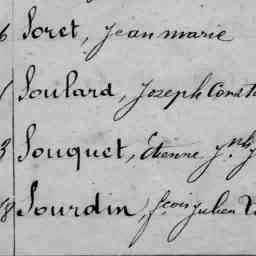 6 Soret, Jean marie
Soulard, Joseph Const
3 Souquet, Etienne Jph J
8 Sourdin, fcois Julien V